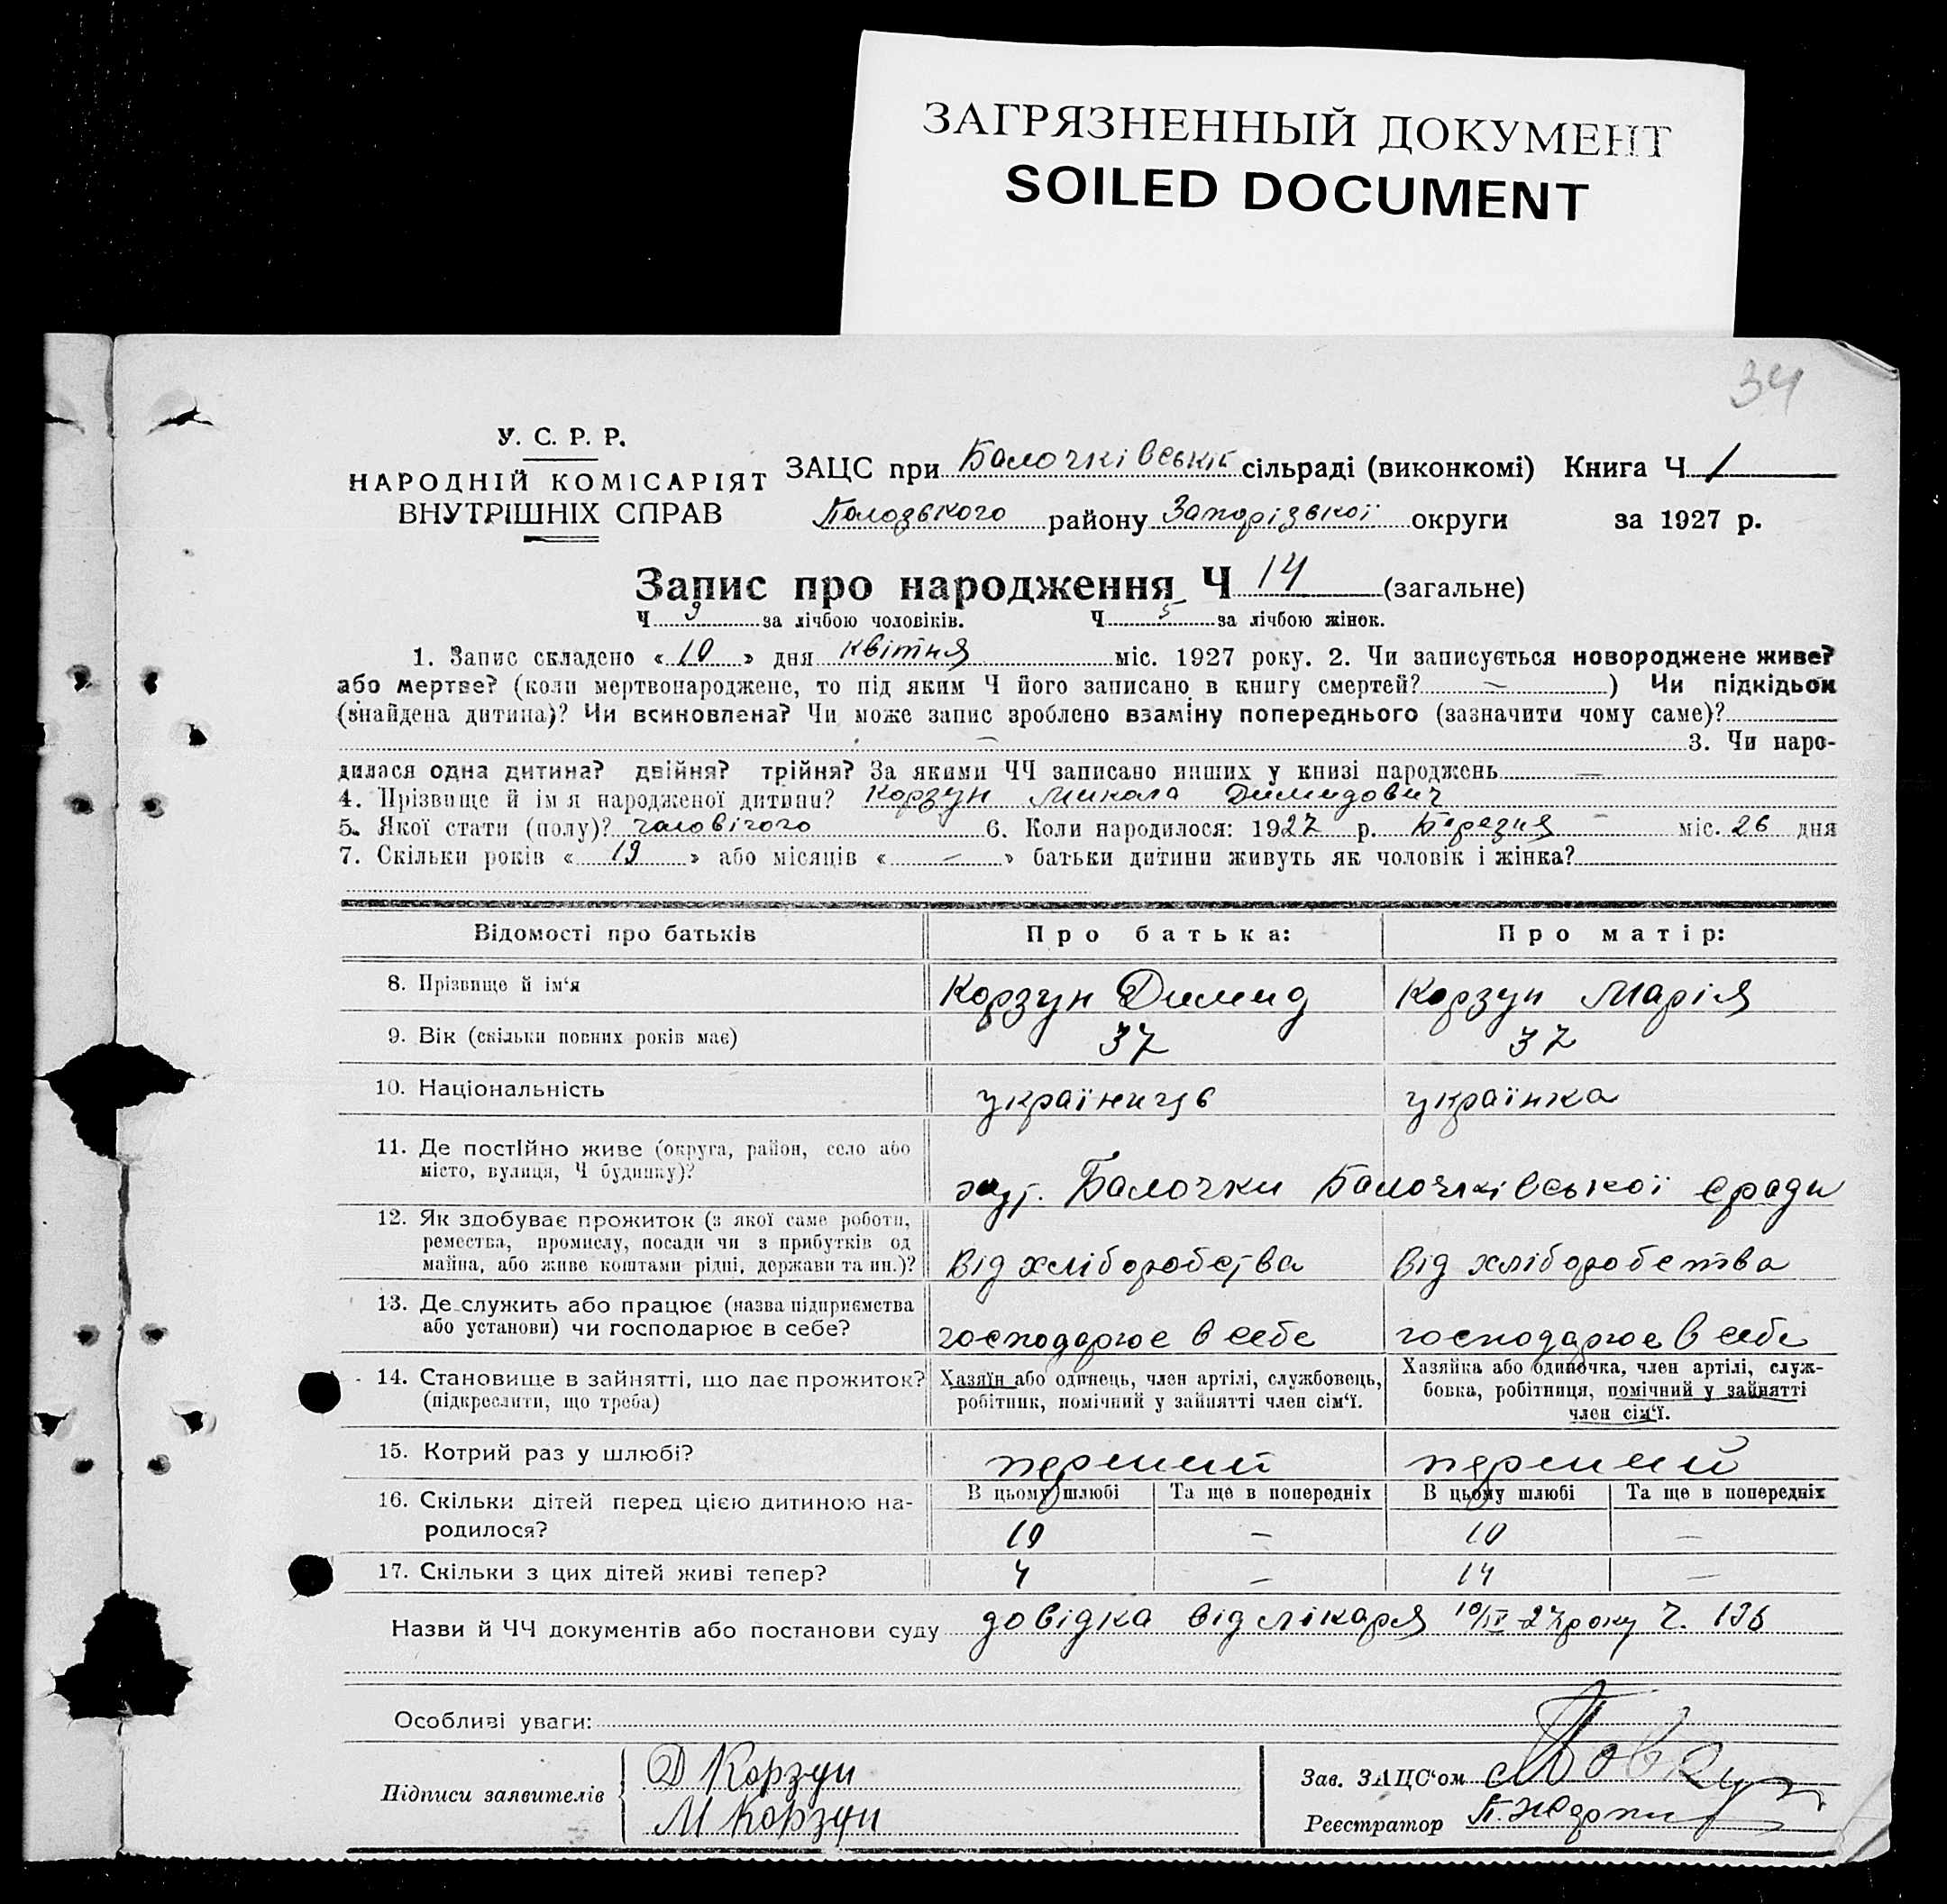 ЗАГРЯЗНЕННЫЙ ДОКУМЕНТ
SOILED DOCUMENT
34
У. С. Р. Р.
НАРОДНІЙ КОМІСАРІЯТ
ВНУТРІШНІХ СПРАВ
ЗАЦС при Балочківські сільраді (виконкомі) Книга Ч 1
Пологського району Запорізької округи за 1927 р.
Запис про народження Ч 14 (загальне)
Ч 9 за лічбою чоловіків. Ч 5 за лічбою жінок.
1. Запис складено « 10 » дня квітня міс. 1927 року. 2. Чи записується новороджене живе?
або мертве? (коли мертвонароджене, то під яким Ч його записано в книгу смертей? — ) Чи підкідьок
(знайдена дитина)? Чи всиновлена? Чи може запис зроблено взаміну попереднього (зазначити чому саме)?
— 3. Чи наро-
дилася одна дитина? двійня? трійня? За якими ЧЧ записано инших у книзі народжень —
4. Прізвище й ім я народженої дитини? Корзун Микола Димидович
5. Якої стати (полу)? чоловічого 6. Коли народилося: 1927 р. Березня — міс. 26 дня
7. Скільки років « 19 » або місяців « — » батьки дитини живуть як чоловік і жінка?
Відомості про батьків Про батька: Про матір:
8. Прізвище й ім'я Корзун Димид Корзун Марія
9. Вік (скільки повних років має) 37 37
10. Національність україниць українка
11. Де постійно живе (округа, район, село або
місто, вулиця, Ч будинку)? хут. Балочки Балочківської сради
12. Як здобуває прожиток (з якої саме роботи,
ремества, промислу, посади чи з прибутків од
майна, або живе коштами рідні, держави та ин.)? Від хліборобства Від хліборобства
13. Де служить або працює (назва підприємства
або установи) чи господарює в себе? господарює в себе господарює в себе
14. Становище в зайнятті, що дає прожиток?
(підкреслити, що треба)
Хазяїн або одинець, член артілі, службовець,
робітник, помічний у зайнятті член сім'ї.
Хазяйка або одиночка, член артілі, служ-
бовка, робітниця, помічний у зайнятті
член сім'ї.
15. Котрий раз у шлюбі? перший перший
16. Скільки дітей перед цією дитиною на-
родилося?
В цьому шлюбі Та ще в попередніх В цьому шлюбі Та ще в попередніх
10 — 10 —
17. Скільки з цих дітей живі тепер? 4 — 14 —
Назви й ЧЧ документів або постанови суду довідка від лікаря 10/IV-27 року Ч.
Особливі уваги:
Підписи заявителів
Д Корзун
М Корзун
Зав. ЗАЦС'ом
Реєстратор